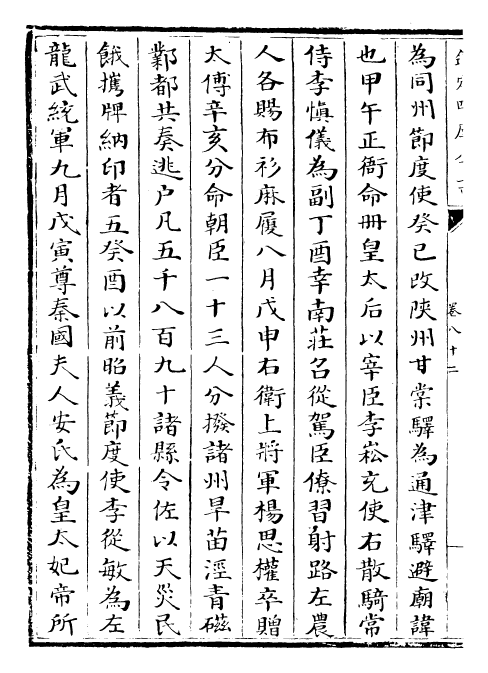 欽定四庫全書
卷八十二
為同州節度使癸巳改陝州甘棠驛為通津驛避廟諱
也甲午正衙命冊皇太后以宰臣李崧充使右散騎常
侍李慎儀為副丁酉幸南莊召從駕臣僚習射路左農
人各賜布衫麻屨八月戊申右衛上將軍楊思權卒贈
太傅辛亥分命朝臣一十三人分撥諸州旱苗涇青磁
鄴都共奏逃户凡五千八百九十諸縣令佐以天災民
餓攜牌納印者五癸酉以前昭義節度使李從敏為左
龍武統軍九月戊寅尊秦國夫人安氏為皇太妃帝所